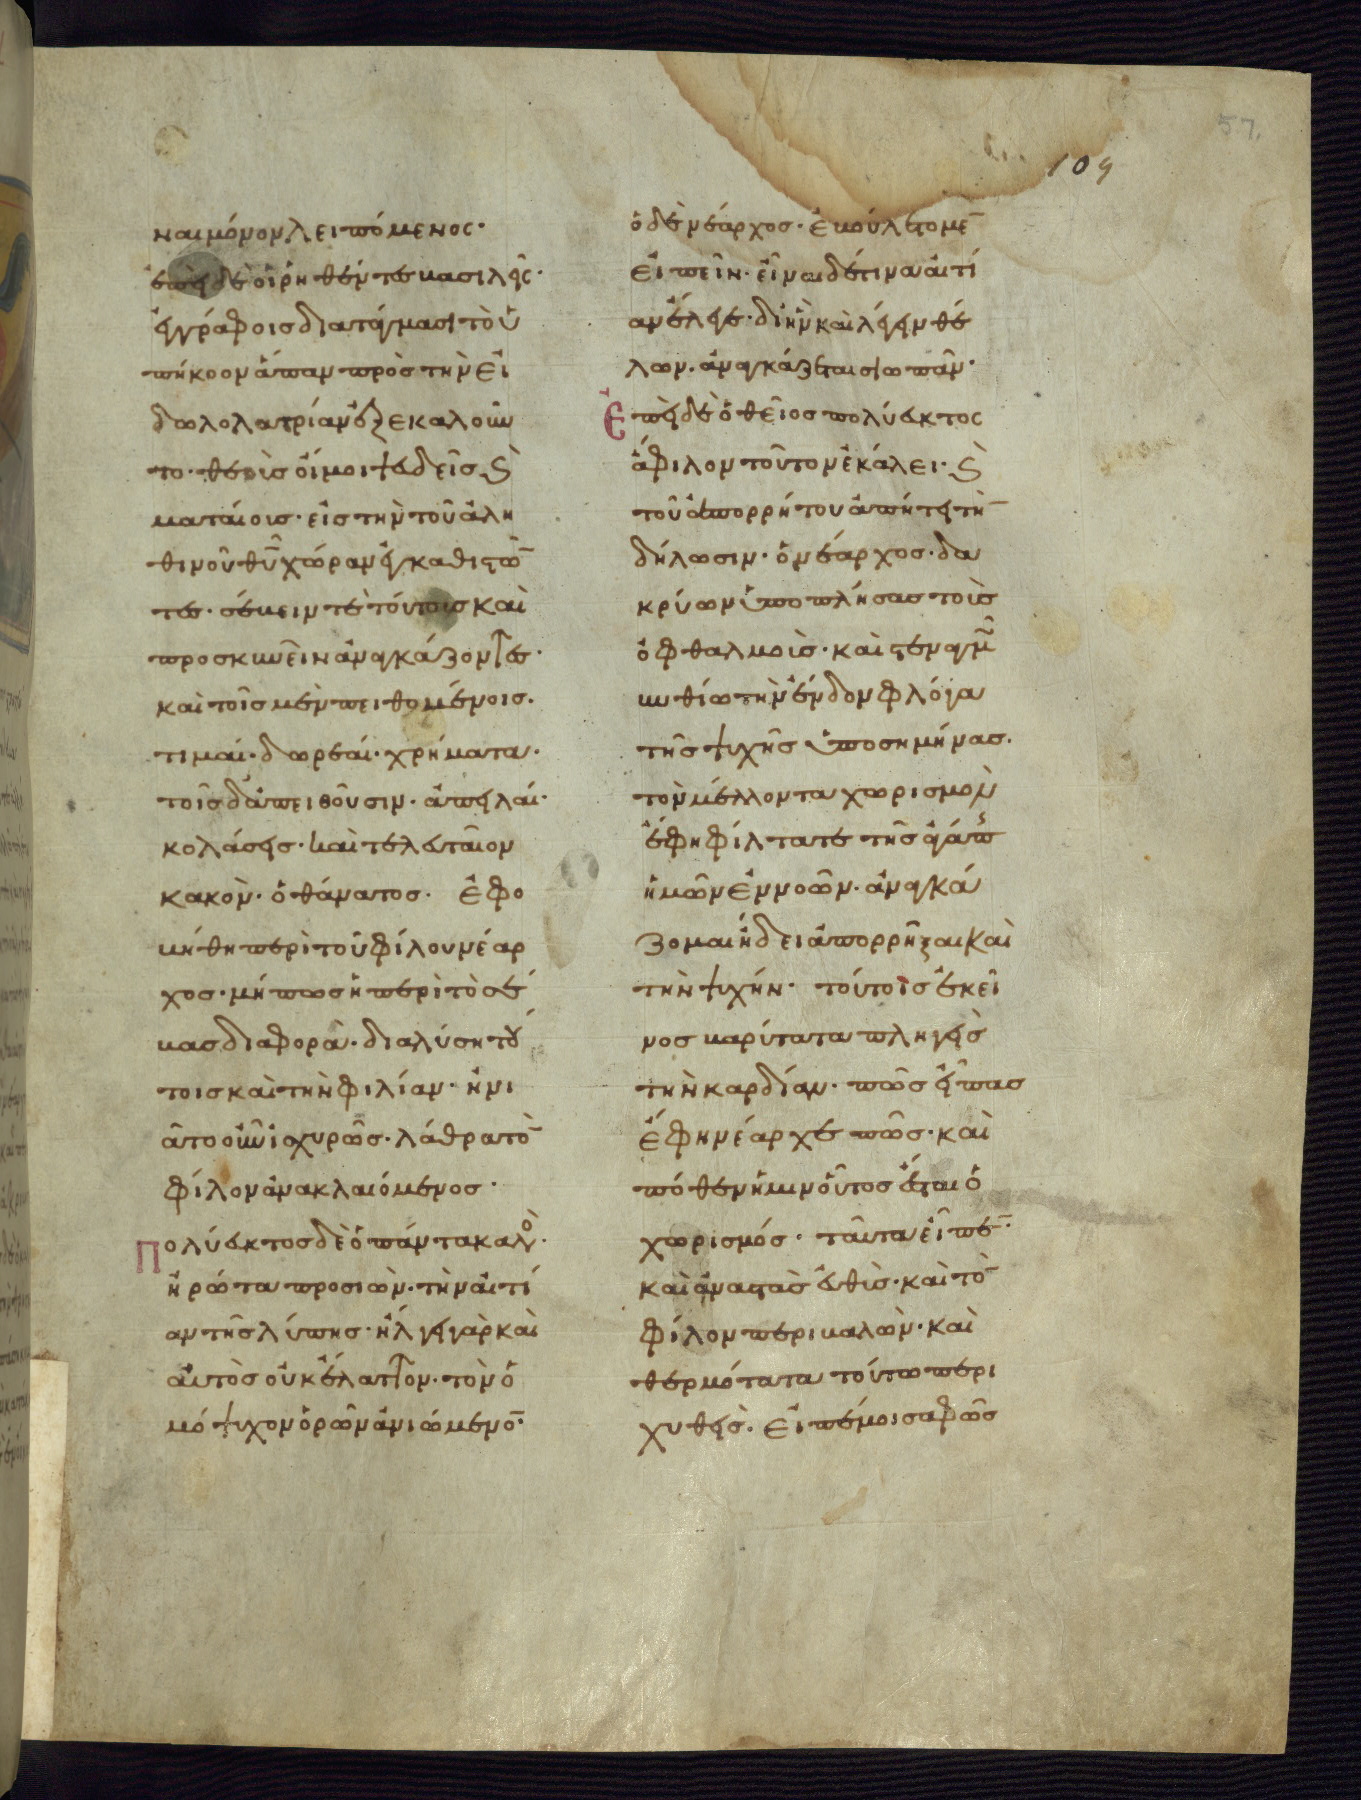 57.
109
ναι μόνον λειπόμενος·
ἐπεὶ δὲ οἱ ῥηθέντες βασιλεῖς·
ἐγγράφοις διατάγμασι τὸ ὑ
πήκοον ἅπαν πρὸς τὴν εἰ
δωλολατρίαν ἐξεκαλοῦν
το· θεοῖς οἴμοι ψευδεῖς ϗ
ματαίοις· εἰς τὴν τοῦ ἀλη
θινοῦ θῦ χώραν ἐγκαθιστῶ̅
τες· σέβειν τὲ τούτοις καὶ
προσκυνεῖν ἀναγκάζοντες·
καὶ τοῖς μὲν πειθομένοις·
τιμαί· δωρεαί· χρήματα·
τοῖς δ' ἀπειθοῦσιν· ἀπειλαί·
κολάσεις· καὶ τελευταῖον
κακὸν· ὁ θάνατος· ἐφο
βήθη περὶ τοῦ φίλου νέαρ
χος· μή πως ἡ περὶ τὸ σέ
βας διαφορὰ· διαλύσῃ τού
τοις καὶ τὴν φιλίαν· ἠνι
ᾶτο οὖν ἰσχυρῶς· λάθρα τὸ̅
φίλον ἀνακλαιόμενος·
Πολύευκτος δὲ ὁ πάντα καλὸν·
ἠρώτα προσιὼν· τὴν αἰτί
αν τῆς λύπης· ἤλγει γὰρ καὶ
αὐτὸς οὐκ ἔλαττον· τὸν ὁ
μόψυχον ὁρῶν ἀνιώμενο̅·
ὁ δὲ νέαρχος· ἐβούλετο με̅
εἰπεῖν· εἶναι δέ τινα αἰτί
αν ἔλεγε· δι' ἣν καὶ λέγειν θέ
λων· ἀναγκάζεται σιωπᾶν·
Ἐπεὶ δὲ ὁ θεῖος πολύευκτος
ἄφιλον τοῦτον ἐκάλει· ϗ
τοῦ ἀπορρήτου ἀπήτει τὴ̅
δήλωσιν· ὁ νέαρχος· δα
κρύων ὑποπλήσας τοὺς
ὀφθαλμοὺς· καὶ στεναγμῶ
βυθίω τὴν ἔνδον φλόγα
τῆς ψυχῆς ὑποσημήνας·
τὸν μέλλοντα χωρισμὸν
ἔφη φίλτατε τῆς ἀγάπης
ἡμῶν ἐννοῶν· ἀναγκά
ζομαι ἤδει ἀπορρῆξαι καὶ
τὴν ψυχήν· τούτοις ἐκεῖ
νος βαρύτατα πληγεὶς
τὴν καρδίαν· πῶς εἶπας
ἔφη νέαρχε πῶς· καὶ
πόθεν ἡμῖν οὗτος ἔσται ὁ
χωρισμός· ταῦτα εἶπε̅·
καὶ ἀναστὰς εὐθὺς· καὶ τὸ̅
φίλον περιβαλὼν· καὶ
θερμότατα τούτω περι
χυθεὶς· εἰπέ μοι σαφῶς